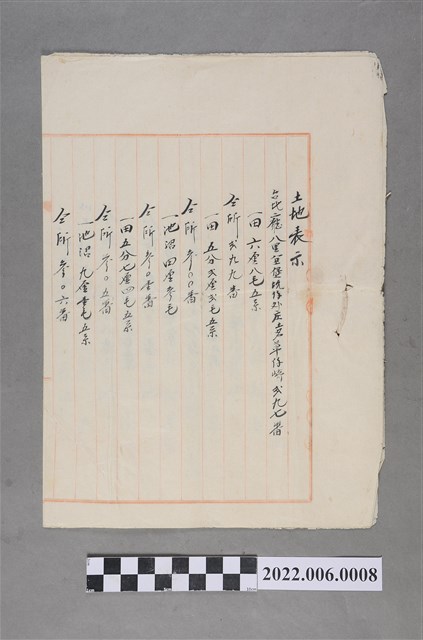 土地表示
台北廳八里坌堡坑仔外庄土名草仔崎弐九七番
一田 六厘八毛五糸
仝所 弐九九番
一田 五分弐厘弐毛五糸
仝所 參〇〇番
一池沼 四厘參毛
仝所 參〇壹番
一田 五分七厘四毛五糸
仝所 參〇五番
一池沼 九厘壹毛五糸
仝所 參〇六番
2022.006.0008